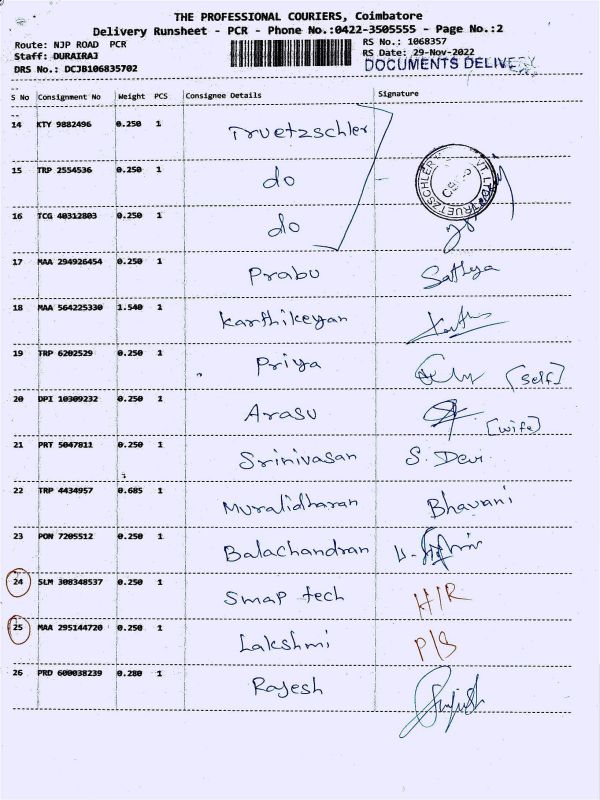 THE PROFESSIONAL COURIERS, Coimbatore
Delivery Runsheet - PCR - Phone No.:0422-3505555 - Page No.:2
Route: NJP ROAD PCR RS No.: 1068357
Staff: DURAIRAJ RS Date: 29-Nov-2022
DRS No.: DCJB106835702 DOCUMENTS DELIVERY
S No Consignment No Weight PCS Consignee Details Signature
14 KTY 9882496 0.250 1 Truetzschler
15 TRP 2554536 0.250 1 do
16 TCG 40312803 0.250 1 do
17 MAA 294926454 0.250 1 Prabu Sathya
18 MAA 564225330 1.540 1 Karthikeyan
19 TRP 6202529 0.250 1 Priya [self]
20 DPI 10309232 0.250 1 Arasu [wife]
21 PRT 5047811 0.250 1 Srinivasan S. Devi
22 TRP 4434957 0.685 1 Muralidharan Bhavani
23 PON 7205512 0.250 1 Balachandran
24 SLM 308348537 0.250 1 Smap tech H/R
25 MAA 295144720 0.250 1 Lakshmi P/S
26 PRD 600038239 0.280 1 Rajesh